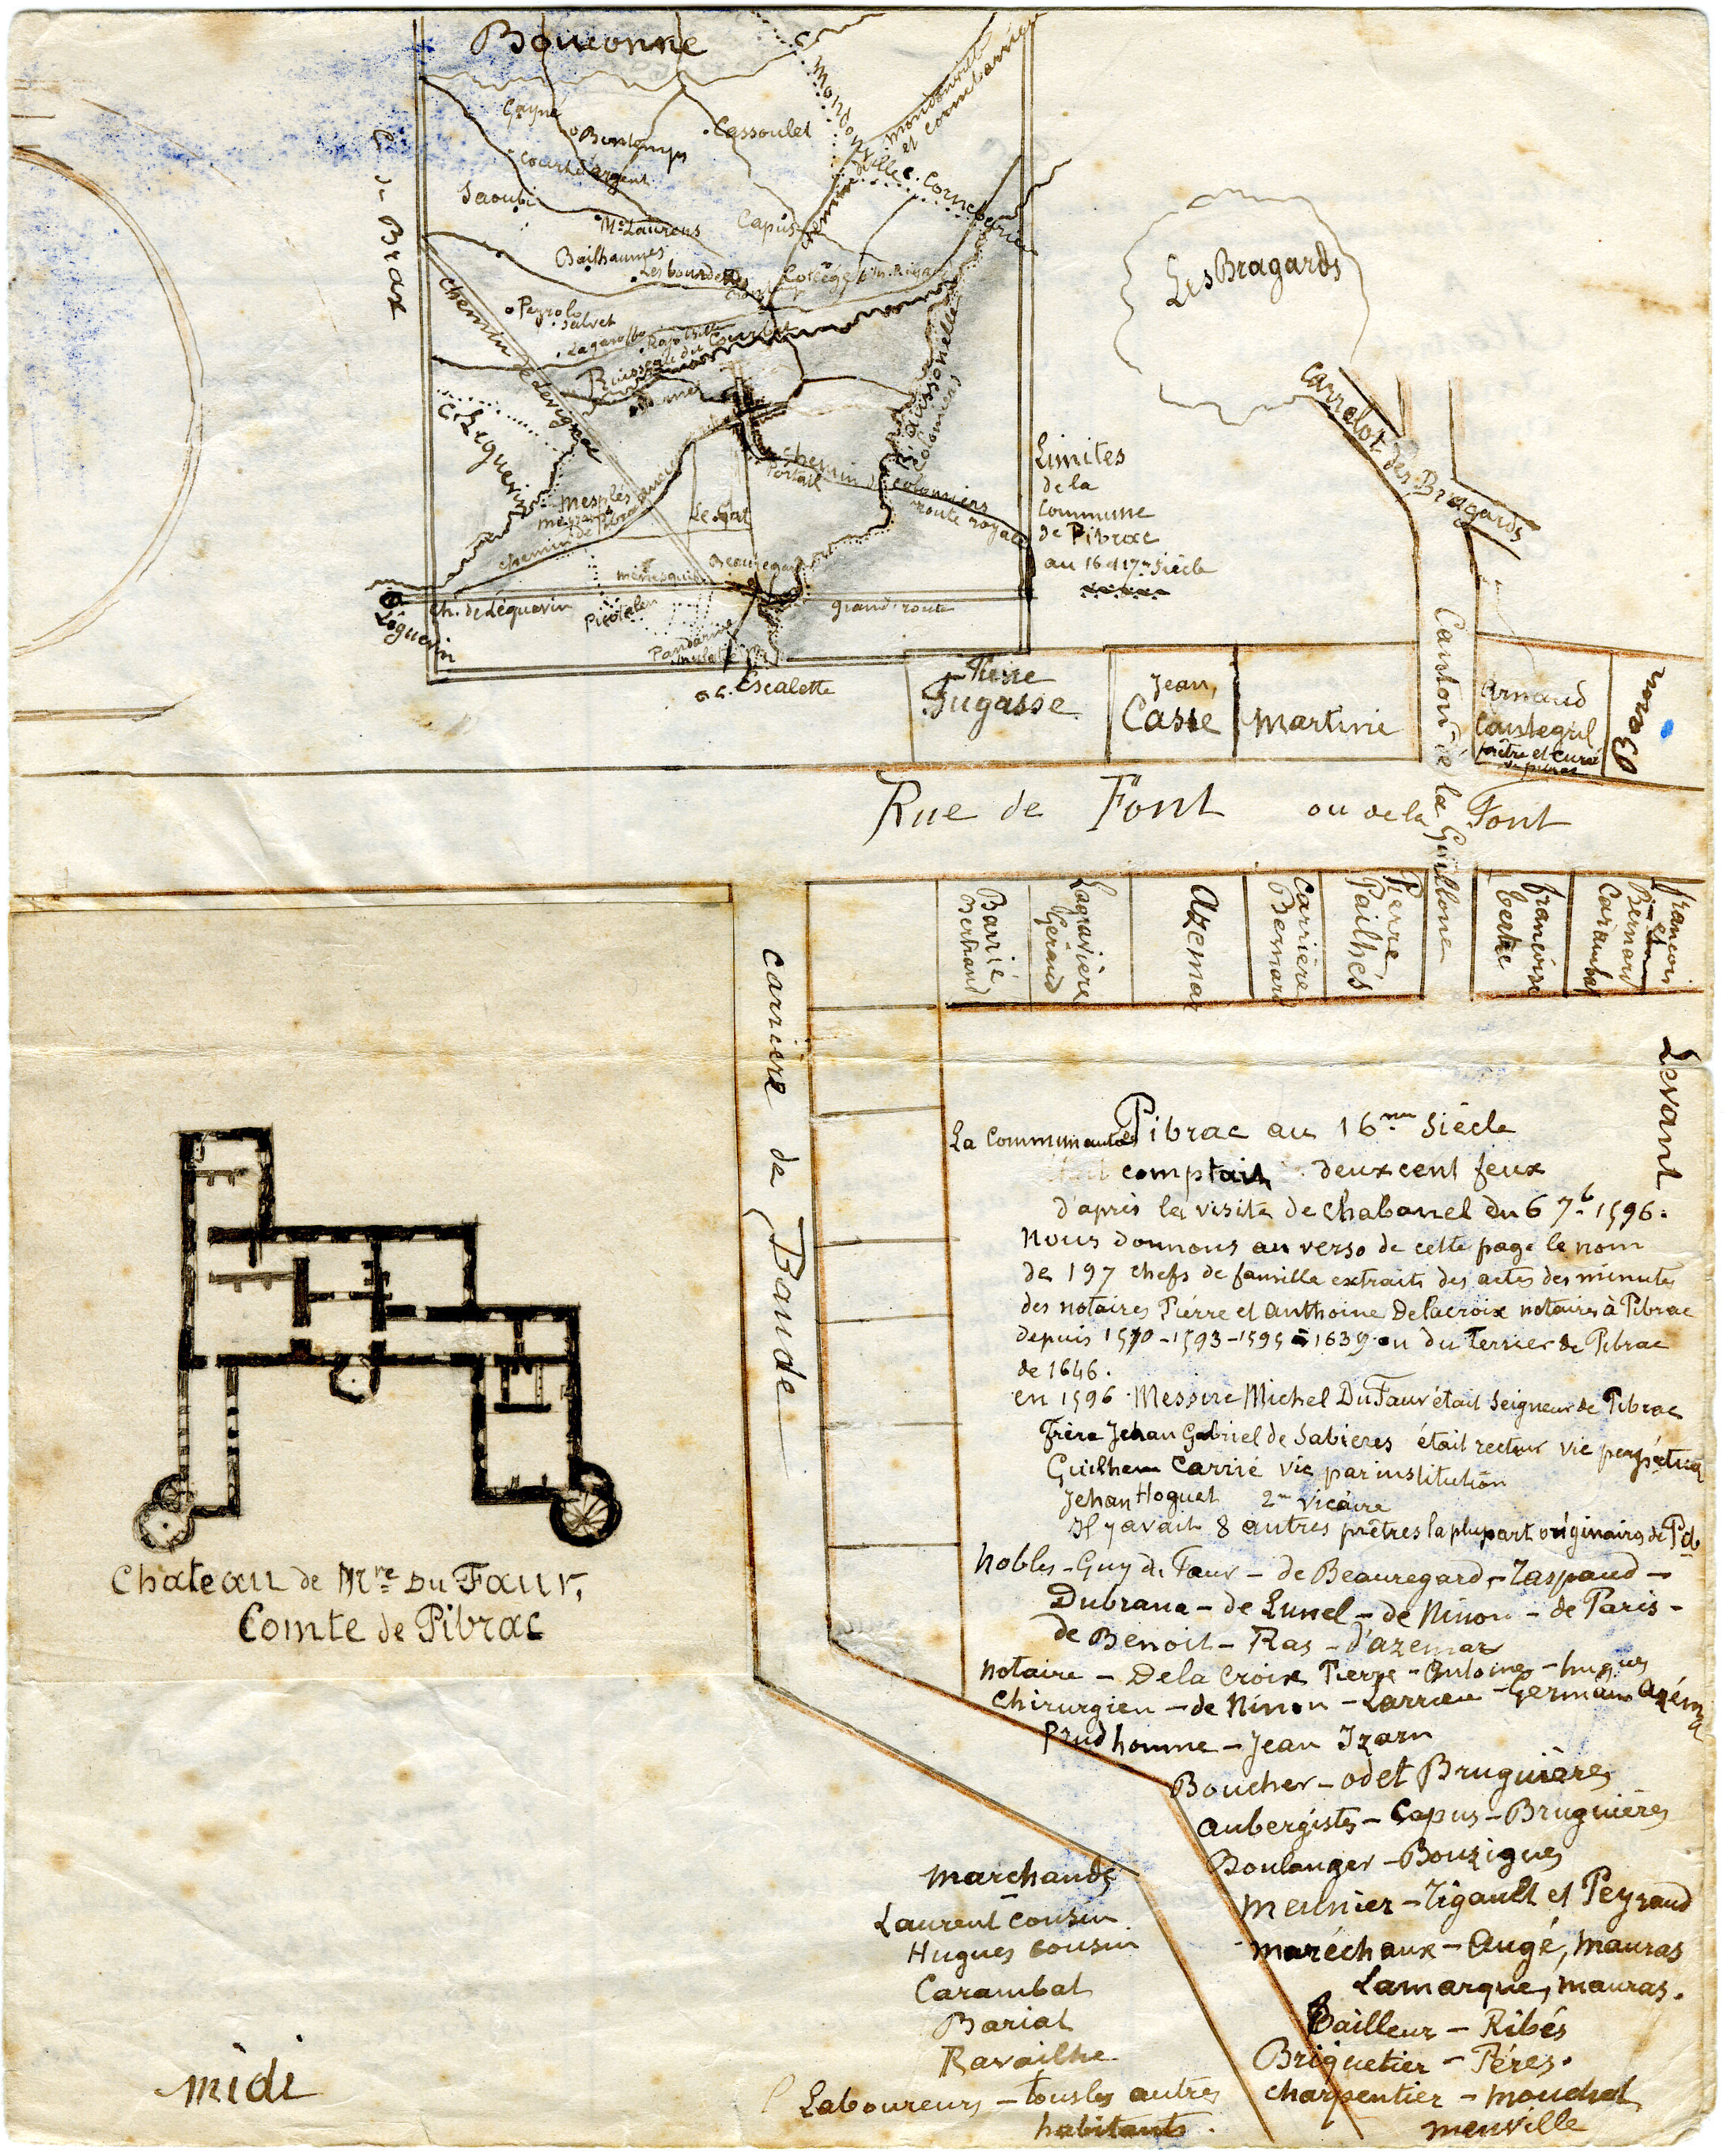 Bouconne
C. de Brax
Gayné
Bontemps
Cassoulet
Courtd'argent
Saoubi
Mr Laurens
Capus
Bailhaumes
Les bourdettes
Mondonville
C. Cornebarrieu
mondonville
et cornebarrieu
Peyrole
Salvet
Lagarosse
Ruisseau du Courbet
Chemin de Levignac
C. Leguevin
R. d'aussonnelle
Colomiers
chemin de colomiers
route royale
Portail
mesplés
Le Gat
chemin de
Beauregard
menesquie
Ch. de Léguevin
Léguevin
Picotalen
Pandarine
grand route
C. Escalette
Limites
de la
Commune
de Pibrac
au 16 et 17me Siècle
Les Bragards
Carrelot des Bragards
Canton de la Guillone
Pierre
Jugasse
Jean
Casse
Martinie
Arnaud
Coustegril
prêtre et curé
de pibrac
Rue de Font ou de la Font
Barrié
Bertrand
Lagravière
Géraud
Azemar
Carrière
Bernard
Pierre
Pailhés
françoise
françois
et
Bernard
Carambat
Carriere de Dande
Levant
La Communauté de Pibrac au 16me Siècle
comptait deux cent feux
d'après la visite de Chabanel du 6 7b 1596.
Nous donnons au verso de cette page le nom
de 197 chefs de famille extraits des actes des minutes
des notaires Piérre et Anthoine Delacroix notaires à Pibrac
depuis 1570-1593-1595 à 1639 ou du Terrier de Pibrac
de 1646.
en 1596 Messire Michel Du Faur était Seigneur de Pibrac
Frère Jehan Gabriel de Sabieres était recteur vic perpétuel
Guilhem Carrié vic par institution
Jehan Hoguet 2me vicaire
Il y avait 8 autres prêtres la plupart originaires de Pib
Nobles - Guy du Faur - de Beauregard - Zaspaud -
Dubrana - de Lunel - de Ninon - de Paris -
de Benoit - Ras - d'azemar
Notaire - De la Croix Pierre - Antoine - hugues
Chirurgien - de Ninon - Larrieu - Germain Azéma
Prudhomme - Jean Izarn
Boucher - odet Bruguières
Aubergistes - Capus - Bruguières
Boulanger - Bouzigues
Meunier - Tigault et Peyraud
Maréchaux - Augé, Mauras
Lamarque, Mauras.
Tailleur - Ribés
Briquetier - Péres.
Charpentier - Mouchet
Menville
Marchands
Laurent Cousin
Hugues Cousin
Carambat
Bariat
Ravailhe
Laboureurs - tous les autres
habitants.
Chateau de Mre Du Faur,
Comte de Pibrac
midi